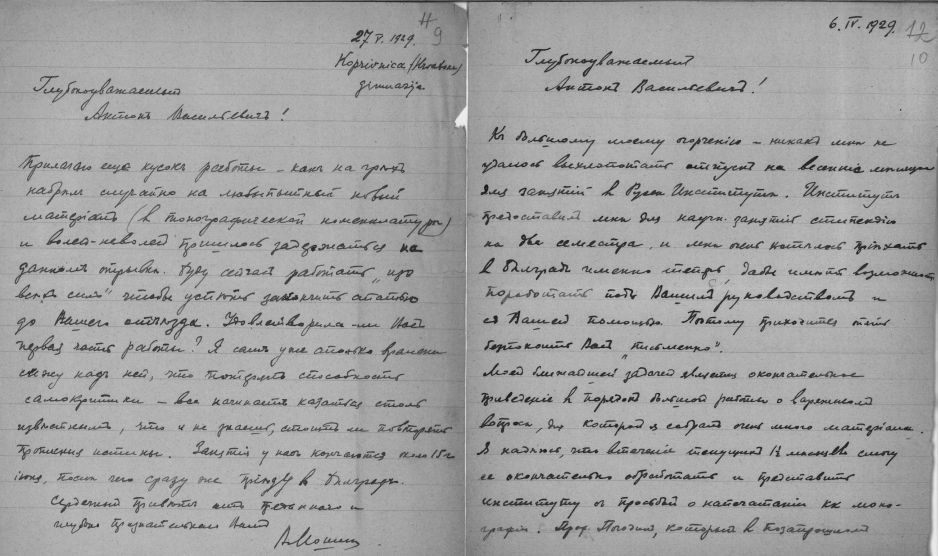 27 V. 1929.
9
Koprivnica (Hrvatska)
gimnazija
Глубокоуважаемый
Антонъ Васильевичъ!
Прилагаю еще кусокъ работы – какъ на
набрелъ случайно на любопытный новый
матерiалъ (въ топографической номенклатурѣ)
и волей-неволей пришлось задержаться на
данномъ отрывкѣ. Буду сейчасъ работать „изо
всѣхъ силъ" чтобы успѣть закончить
до Вашего отъѣзда. Удовлетворила-ли Васъ
первая часть работы? Я самъ уже столько времени
сижу надъ ней, что потерялъ способность
самокритики – все начинаетъ казаться столь
извѣстнымъ, что и не знаешь, стоитъ ли повторять
истины. Занятiя у насъ кончаются около 15-г
iюня, послѣ чего сразу же прiѣду въ Бѣлградъ.
Сердечный привѣтъ отъ преданнаго и
глубоко признательнаго Вамъ
А. Мошинъ
6. IV. 1929.
12
10
Глубокоуважаемый
Антонъ Васильевичъ!
Къ большому моему огорченiю – никакъ мнѣ не
удалось выхлопотать отпускъ на весеннiе мѣсяцы
для занятiй въ Русск. Институтѣ. Институтъ
предоставилъ мнѣ для научн. занятiй стипендiю
на два семестра, и мнѣ очень хотѣлось прiѣхать
въ Бѣлградъ именно теперь, дабы имѣть возможность
поработать подъ Вашимъ руководствомъ и
съ Вашей помощью. Поэтому приходится опять
безпокоить Васъ „письменно".
Моей ближайшей задачей является окончательное
приведенiе въ порядокъ большой работы о варяжскомъ
вопросѣ, для которой я собралъ очень много матерiала.
Я надѣюсь, что втеченiе текущихъ 1½ мѣсяцевъ смогу
ее окончательно обработать и представить
институту съ просьбой о напечатанiи какъ моно-
графiи. Проф. Погодинъ, который въ позапрошломъ